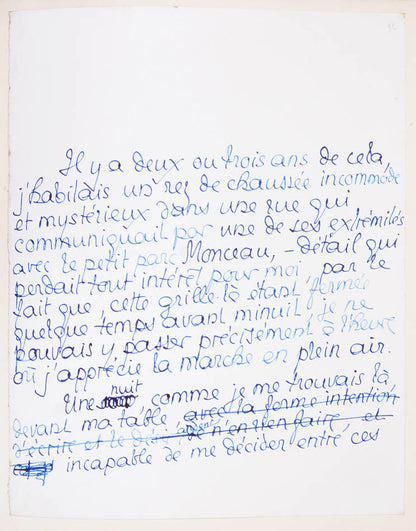 Il y a deux ou trois ans de cela,
j'habitais un rez de chaussée incommode
et mystérieux dans une rue qui
communiquait par une de ses extrémités
avec le petit parc Monceau, – détail qui
perdait tout intérêt pour moi, par le
fait que, cette grille là étant fermée
quelque temps avant minuit, je ne
pouvais y passer précisément à l'heure
où j'apprécie la marche en plein air.
Une nuit comme je me trouvais là
devant ma table avec la ferme intention
d'écrire et le désir de n'en rien faire, et
incapable de me décider entre ces